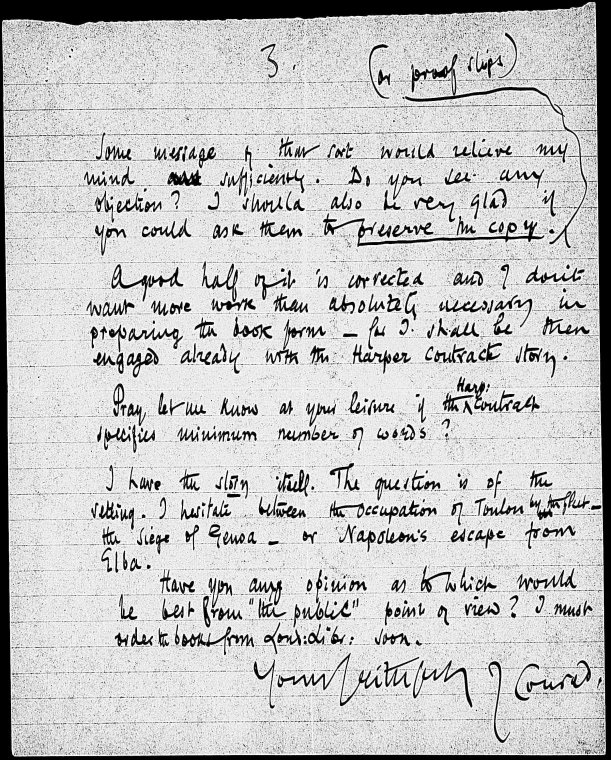 3.
(or proof slips)
Some message of that sort would relieve my
mind sufficiently. Do you see any
objection? I should also be very glad if
you could ask them to preserve the copy.
A good half of it is corrected and I don't
want more work than absolutely necessary in
preparing the book form — for I shall be then
engaged already with the Harper Contract story.
Pray, let me know at your leisure if the Harp: contract
specifies minimum number of words?
I have the story itself. The question is of the
setting. I hesitate between the Occupation of Toulon by the fleet —
the siege of Genoa — or Napoleon's escape from
Elba.
Have you any opinion as to which would
be best from "the public" point of view? I must
order the books from Lond: Libr: soon.
Yours faithfully J Conrad.